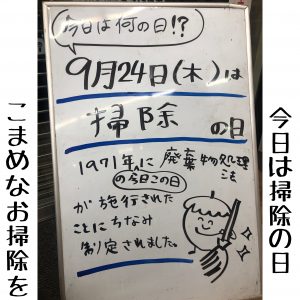 今日は何の日!?
9月24日(木)は
掃除の日
1971年に廃棄物処理法
の今日この日
が施行された
ことにちなみ
制定されました。
今日は掃除の日
こまめなお掃除を